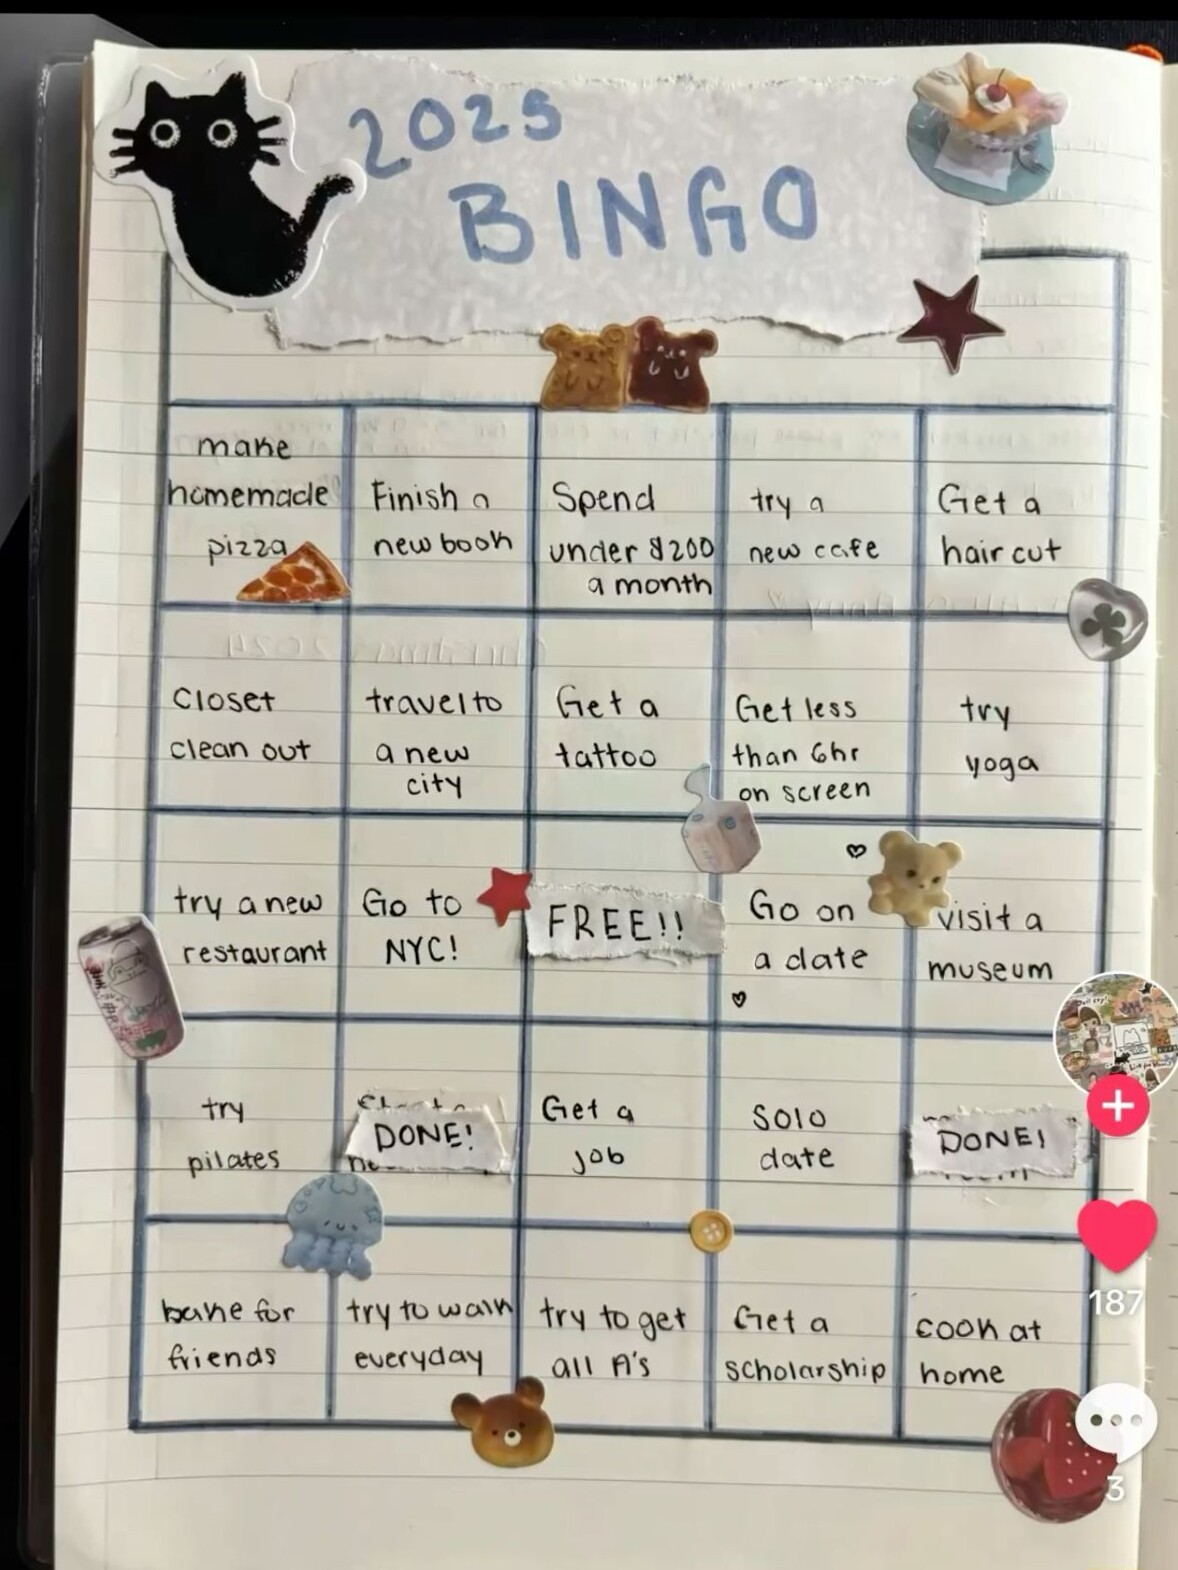 2025
BINGO
make
homemade
pizza
Finish a
new book
Spend
under $200
a month
try a
new cafe
Get a
hair cut
closet
clean out
travel to
a new
city
Get a
tattoo
Get less
than 6hr
on screen
try
yoga
try a new
restaurant
Go to
NYC!
FREE!!
Go on
a date
visit a
museum
try
pilates
DONE!
Get a
job
Solo
date
DONE!
bake for
friends
try to walk
everyday
try to get
all A's
Get a
scholarship
cook at
home
187
3